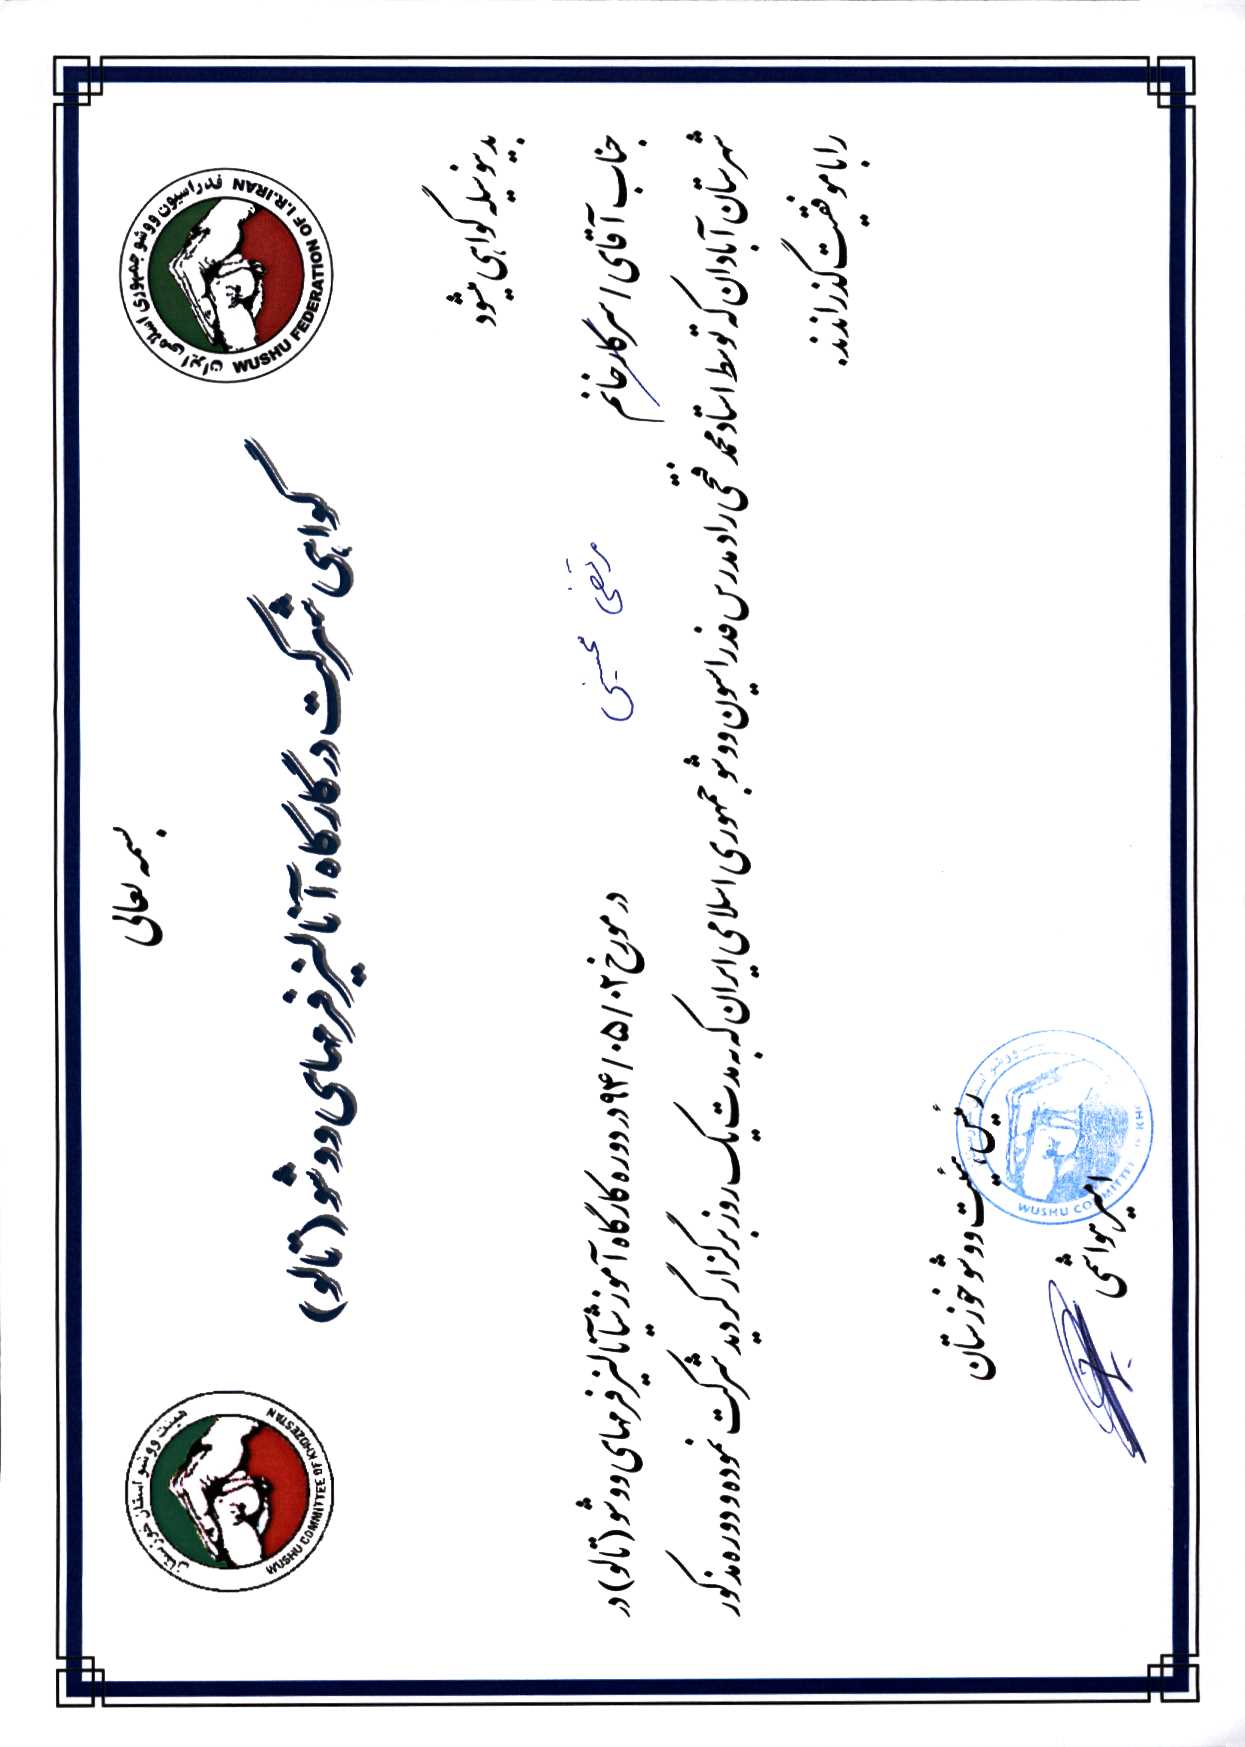 بسمه تعالی
فدراسیون ووشو جمهوری اسلامی ایران
WUSHU FEDERATION OF I.R.IRAN
هیئت ووشو استان خوزستان
WUSHU COMMITTEE OF KHOZESTAN
گواهی شرکت در کارگاه آنالیز فرمهای ووشو (تالو)
بدینوسیله گواهی میشود
جناب آقای / سرکار خانم مرتضی محسنی در مورخ ۹۴/۰۵/۰۲ در دوره کارگاه آموزشی آنالیز فرمهای ووشو (تالو) در
شهرستان آبادان که توسط استاد محمد فتحی راد مدرس فدراسیون ووشو جمهوری اسلامی ایران که به مدت یک روز برگزار گردید شرکت نموده و دوره مذکور
را با موفقیت گذراندند.
رئیس هیئت ووشو خوزستان
WUSHU COMMITTEE
هواشمی